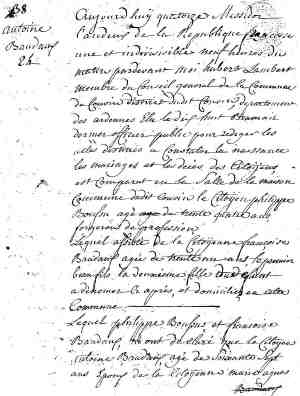 38
Antoine
Baudaux
Aujourd'huy quatorze Messidor
L'an deux de la Republique francoise
une et indivisible neuf heures du
matin pardevant moi hubert Lambert
membre du Conseil general de la Commune
de Couvin district dudit Couvin departement
des ardennes Elu le dix huit
dernier officier public pour rediger les
actes destinés a Constater la naissance
les mariages et les deces des Citoyens
est Comparut en la Salle de la maison
Commune dudit Couvin le Citoyen philippe
agé de trente quatre ans
de profession
Lequel assisté de la Citoyenne francoise
Baudaux agée de trente un ans
la fille
denomer Cy apres, et domiciliée en cette
Commune
Lequel philippe et francoise
Baudaux, m'ont declaré que le Citoyen
Antoine Baudaux agé de Soixante Sept
ans Epoux de la Citoyenne marie agnes
Baudaux